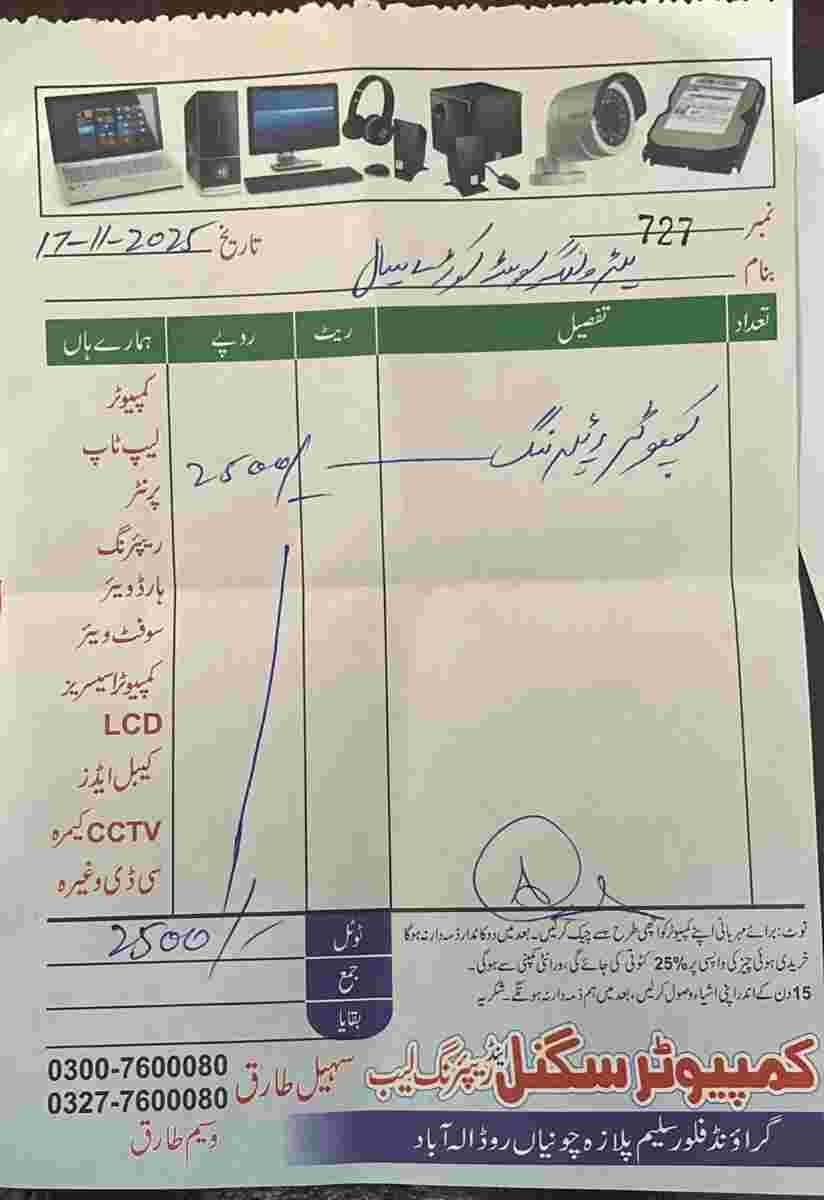 نمبر 727
تاریخ 17-11-2025
بنام
تعداد تفصیل ریٹ روپے ہمارے ہاں
کمپیوٹر
لیپ ٹاپ
کمپیوٹر 2500/-
پرنٹر
ریپئرنگ
ہارڈویئر
سوفٹ ویئر
کمپیوٹر اسیسریز
LCD
کیبل ایڈز
CCTV کیمرہ
سی ڈی وغیرہ
ٹوٹل 2500/-
جمع
بقایا
نوٹ: برائے مہربانی اپنے کمپیوٹر کو اچھی طرح سے چیک کرلیں۔ بعد میں دوکاندار ذمہ دار نہ ہوگا
خریدی ہوئی چیز کی واپسی پر 25% کٹوتی کی جائے گی، ورانٹی کمپنی سے ہوگی۔
15 دن کے اندر اپنی اشیاء وصول کرلیں، بعد میں ہم ذمہ دار نہ ہونگے۔ شکریہ
کمپیوٹر سگنل اینڈ ریپئرنگ لیب
سہیل طارق 0300-7600080
0327-7600080
وسیم طارق
گراؤنڈ فلور سلیم پلازہ چونیاں روڈ الہ آباد